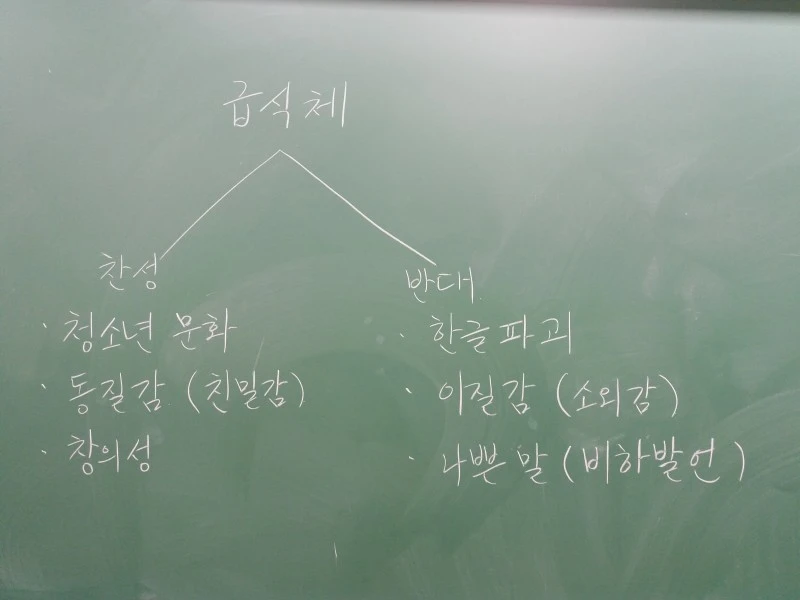 급식체
찬성
· 청소년 문화
· 동질감 (친밀감)
· 창의성
반대
· 한글파괴
· 이질감 (소외감)
· 나쁜 말 (비하발언)